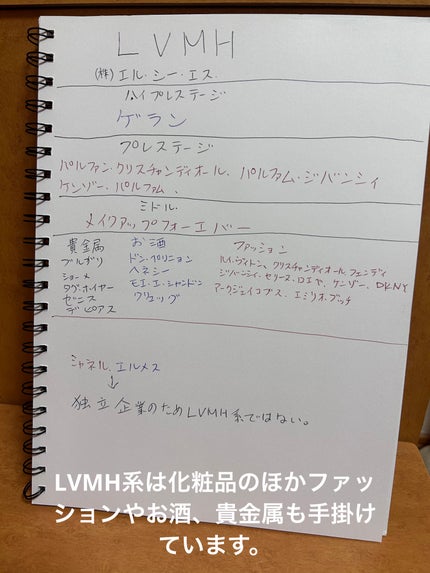 LVMH
(株)エル・シー・エス.
ハイプレステージ
ゲラン
プレステージ
パルファン・クリスチャンディオール、パルファム・ジバンシィ
ケンゾー、パルファム、
ミドル.
メイクアップフォーエバー
貴金属
ブルガリ
ショーメ
タグ・ホイヤー
ゼニス
デビアス
お酒
ドン・ペリニョン
ヘネシー
モエ・エ・シャンドン
クリュッグ
ファッション
ルイ・ヴィトン、クリスチャンディオール、フェンディ
ジバンシィ、セリーヌ、ロエベ、ケンゾー、DKNY
マークジェイコブス、エミリオ・プッチ
シャネル、エルメス
↓
独立企業のためLVMH系ではない。
LVMH系は化粧品のほかファッ
ションやお酒、貴金属も手掛け
ています。